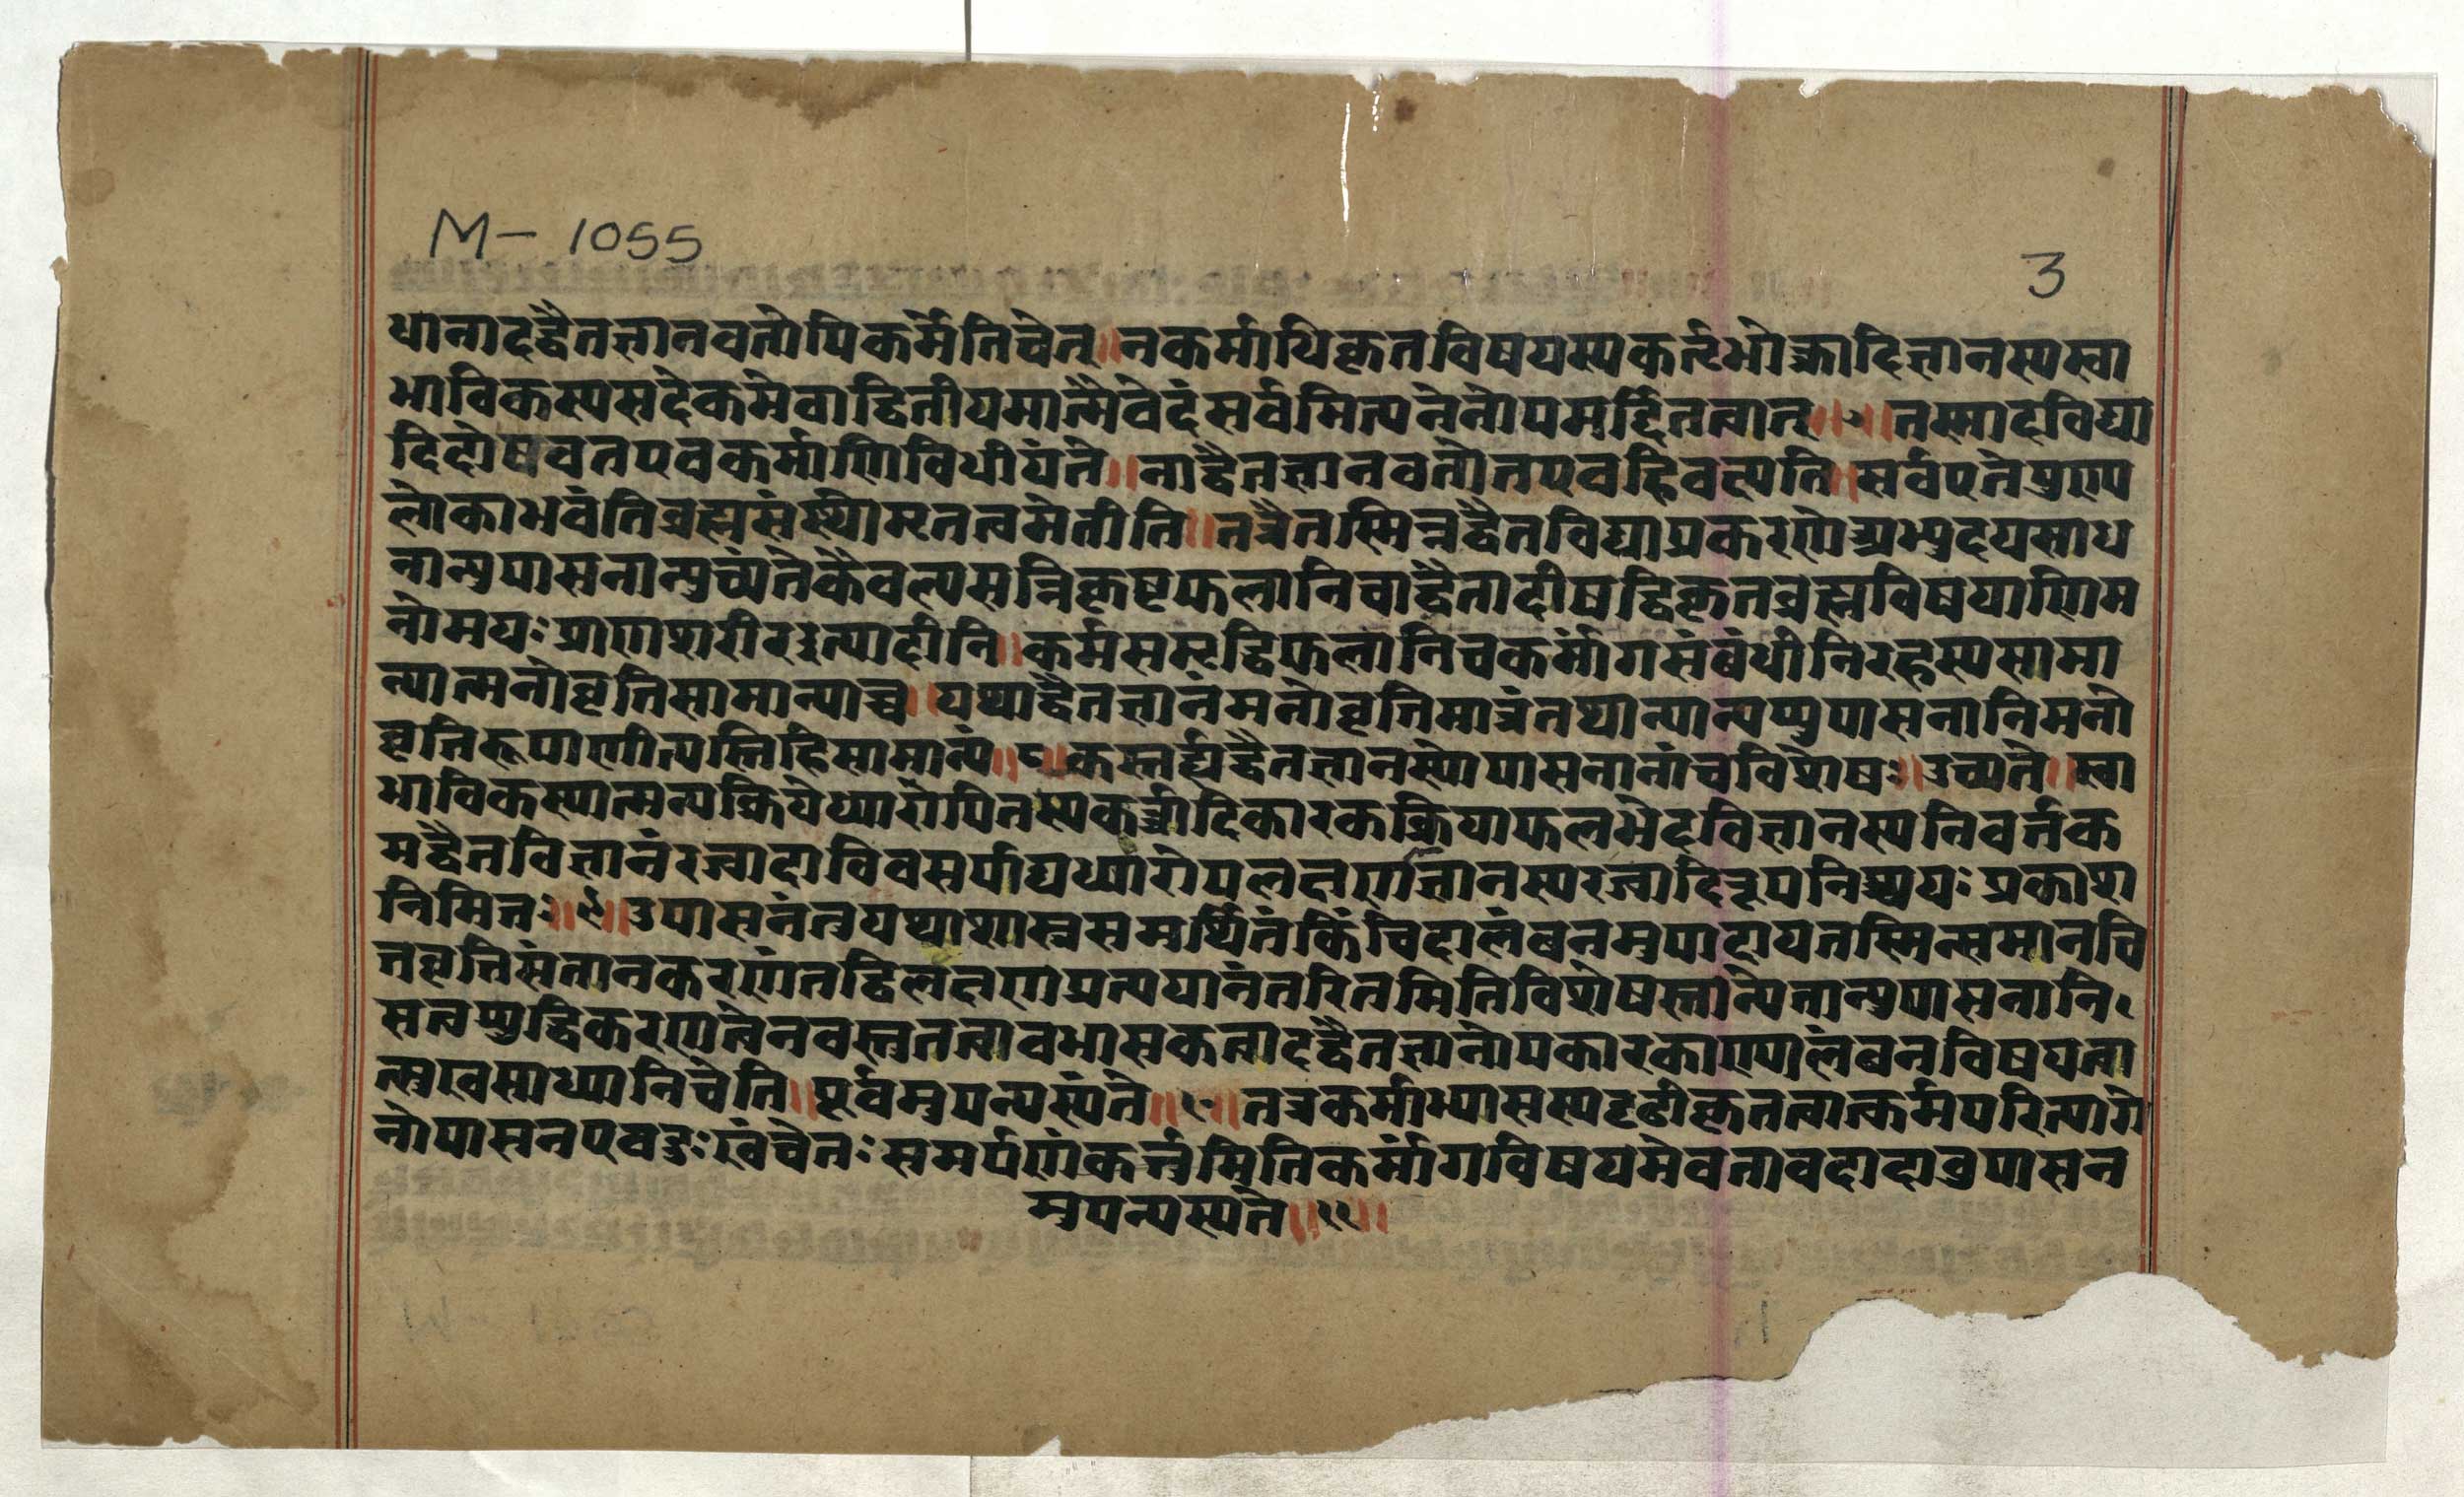 M - 1055
3
धानादद्वैतज्ञानवतोपिकर्मेतिचेत्॥नकर्माधिकृतविषयस्यकर्तृभोक्त्रादिज्ञानस्यस्वा
भाविकस्यसदेकमेवाद्वितीयमात्मैवेदंसर्वमित्यनेनोपमर्द्दितत्वात्॥७॥तस्मादविद्या
दिदोषवतएवकर्माणिविधीयंते॥नाद्वैतज्ञानवतोतएवहिवत्यति॥सर्वएतेपुण्य
लोकाभवंतिब्रह्मसंस्थोमृतत्वमेतीति॥तत्रैतस्मिन्नद्वैतविद्याप्रकरणेअभ्युदयसाध
नान्युपासनान्युच्यंतेकैवल्यसन्निकृष्टफलानिचाद्वैतादीषद्विकृतब्रह्मविषयाणिम
नोमयःप्राणशरीरइत्यादीनि॥कर्मसमृद्धिफलानिचकर्मांगसंबंधीनिरहस्यसामा
न्यात्मनोवृत्तिसामान्याच्च॥यथाद्वैतज्ञानंमनोवृत्तिमात्रंतथान्यान्यप्युपासनानिमनो
वृत्तिरूपाणीत्यस्तिहिसामान्यं॥८॥कस्तर्ह्यद्वैतज्ञानस्योपासनानांचविशेषः॥उच्यते॥स्वा
भाविकस्यात्मन्यक्रियेध्यारोपितस्यकर्त्रादिकारकक्रियाफलभेदविज्ञानस्यनिवर्तक
मद्वैतविज्ञानंरज्वादाविवसर्पाद्यध्यारोपलक्षणज्ञानस्यरज्वादिरूपनिश्चयःप्रकाश
निमित्तः॥९॥उपासनंतुयथाशास्त्रसमर्थितंकिंचिदालंबनमुपादायतस्मिन्समानचि
त्तवृत्तिसंतानकरणंतद्विलक्षणप्रत्ययानंतरितमितिविशेषस्तान्येतान्युपासनानि
सत्वशुद्धिकरणत्वेनवस्तुतत्वावभासकत्वादद्वैतज्ञानोपकारकाण्यालंबनविषयत्वा
त्सुखसाध्यानिचेति॥पूर्वमुपन्यस्यंते॥१०॥तत्रकर्माभ्यासस्यदृढीकृतत्वात्कर्मपरित्यागे
नोपासनएवदुःखंचेतःसमर्पणंकर्त्तुमितिकर्मांगविषयमेवतावदादावुपासन
मुपन्यस्यते॥११॥